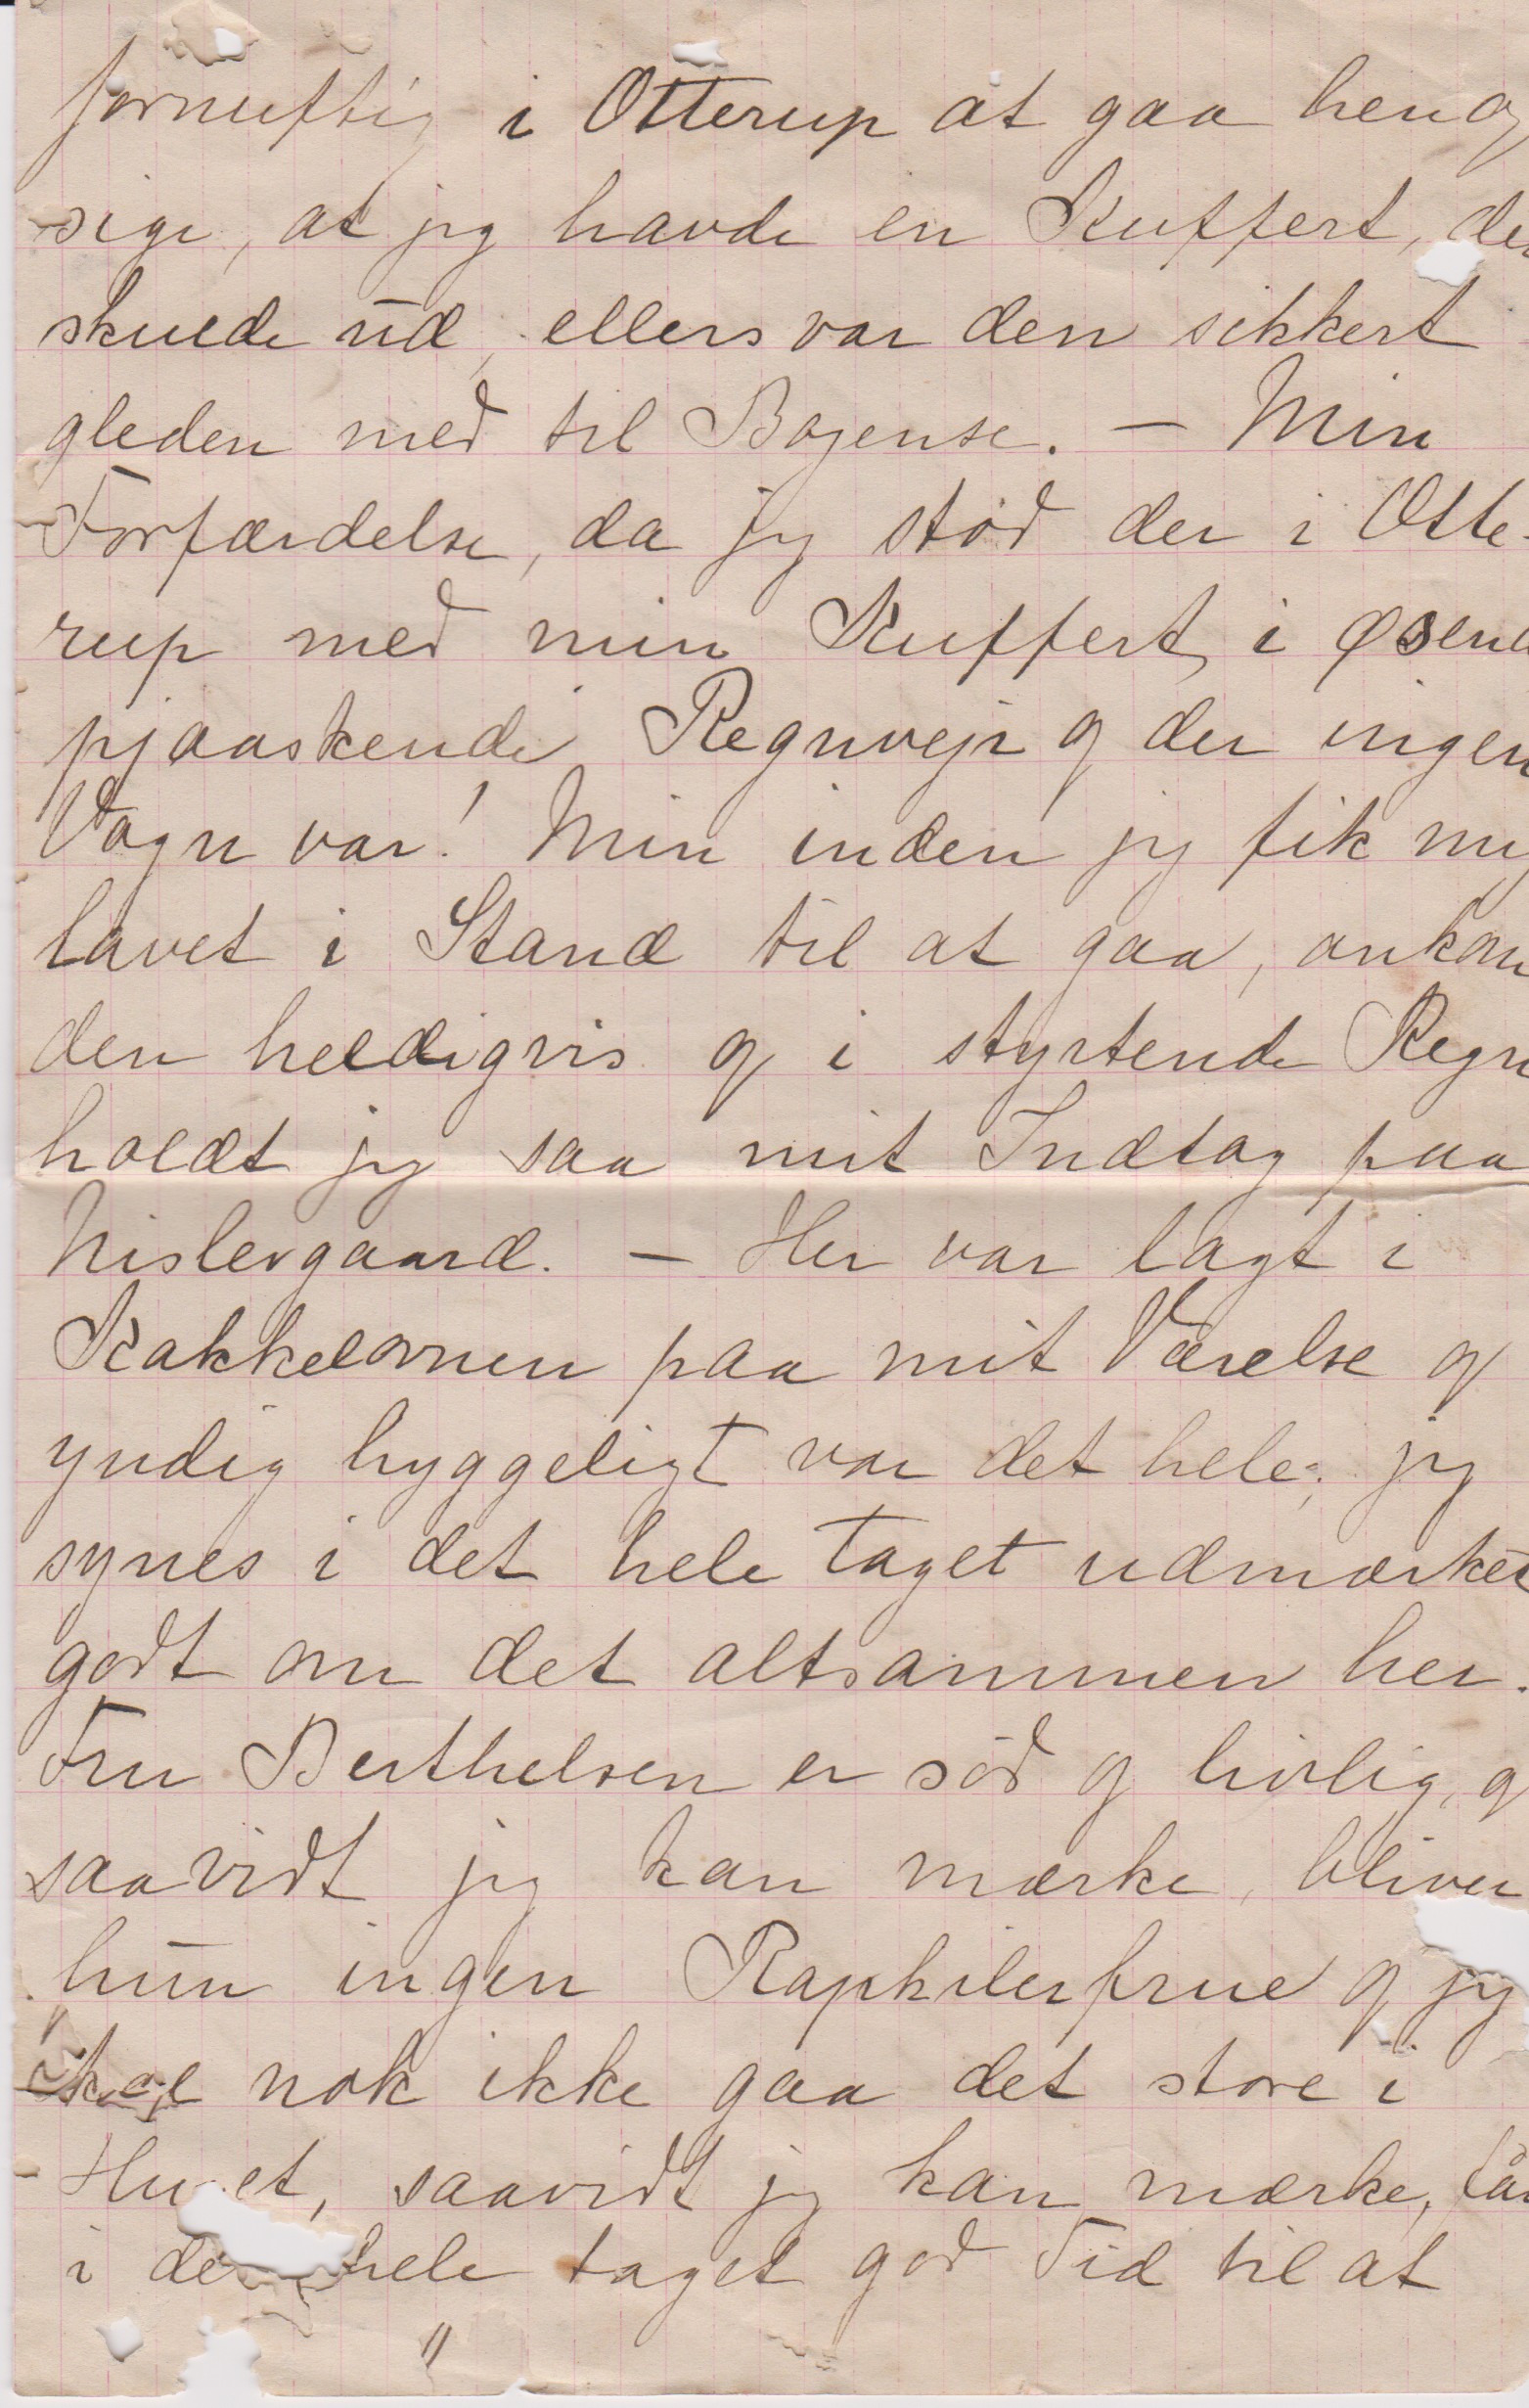 fornuftig i Otterup at gaa hen og
sige, at jeg havde en Kuffert, der
skulde ud, ellers var den sikkert
gleden med til Bogense. – Min
Forfærdelse, da jeg stod der i Otte-
rup med min Kuffert, i øsend
pjaaskende Regnvejr og der ingen
Vogn var! Min inden jeg fik mig
lavet i Stand til at gaa, ankom
den heldigvis og i styrtende Regn
holdt jeg saa mit Indtog paa
Nislevgaard. – Her var lagt i
Kakkelovnen paa mit Værelse og
yndig hyggeligt var det hele; jeg
synes i det hele taget udmærket
godt om det altsammen her.
Fru Berthelsen er sød og livlig, og
saavidt jeg kan mærke, bliver
hun ingen Rapkilerfrue og jeg
skal nok ikke gaa det store i
Huset, saavidt jeg kan mærke, får
i det hele taget god Tid til at